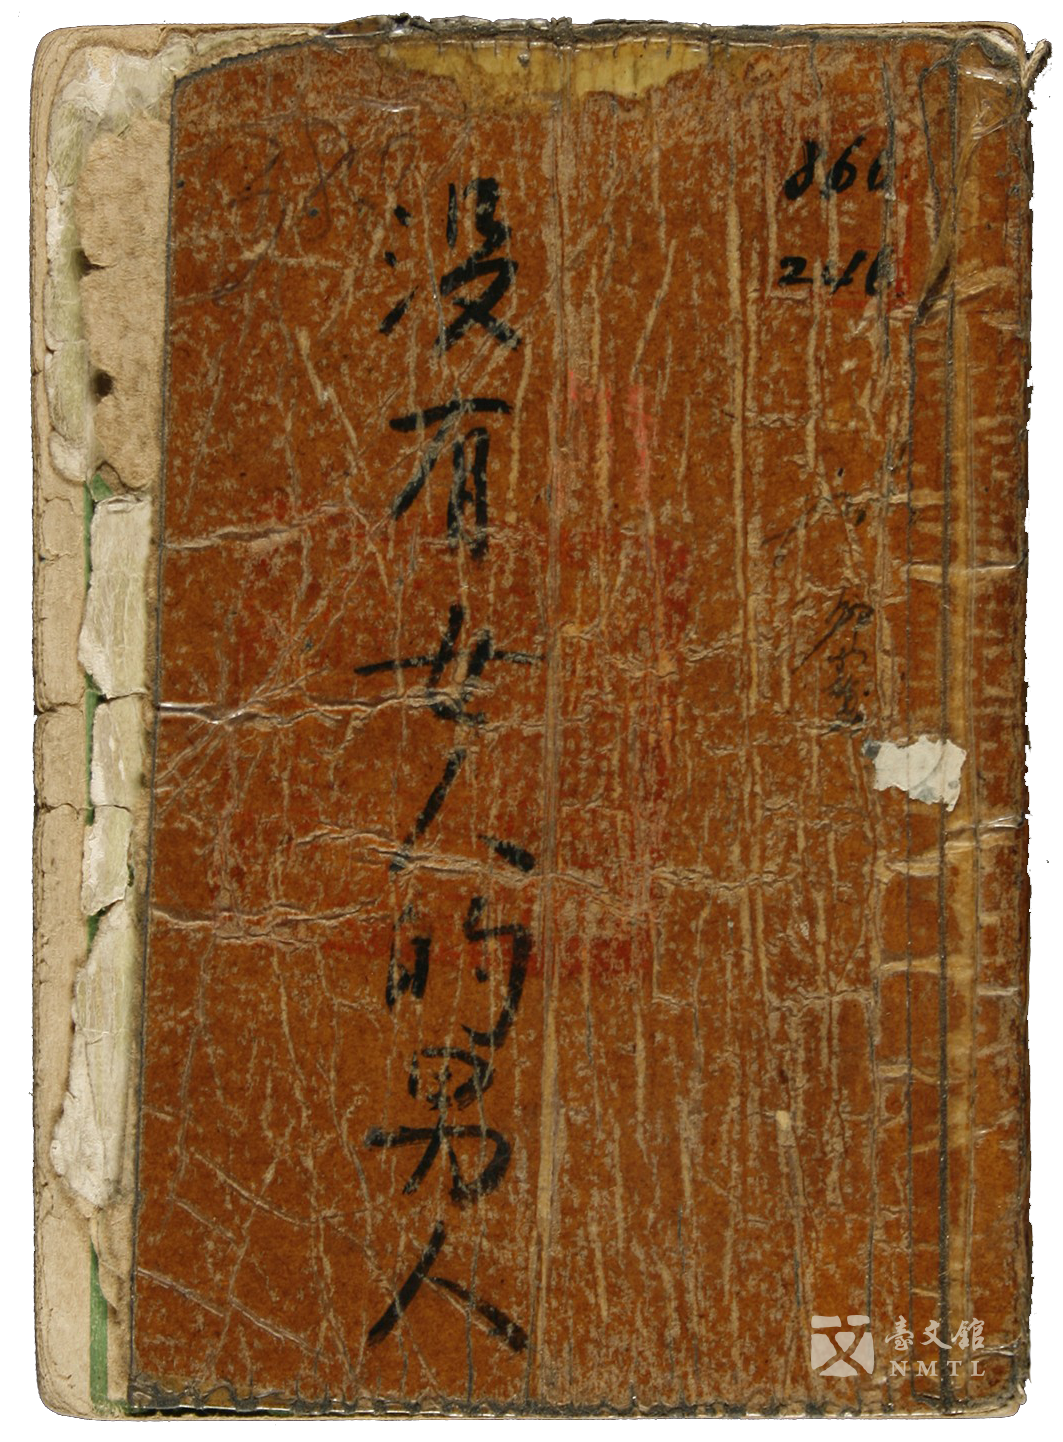 866
246
没有女人的男人
臺文館
NMTL